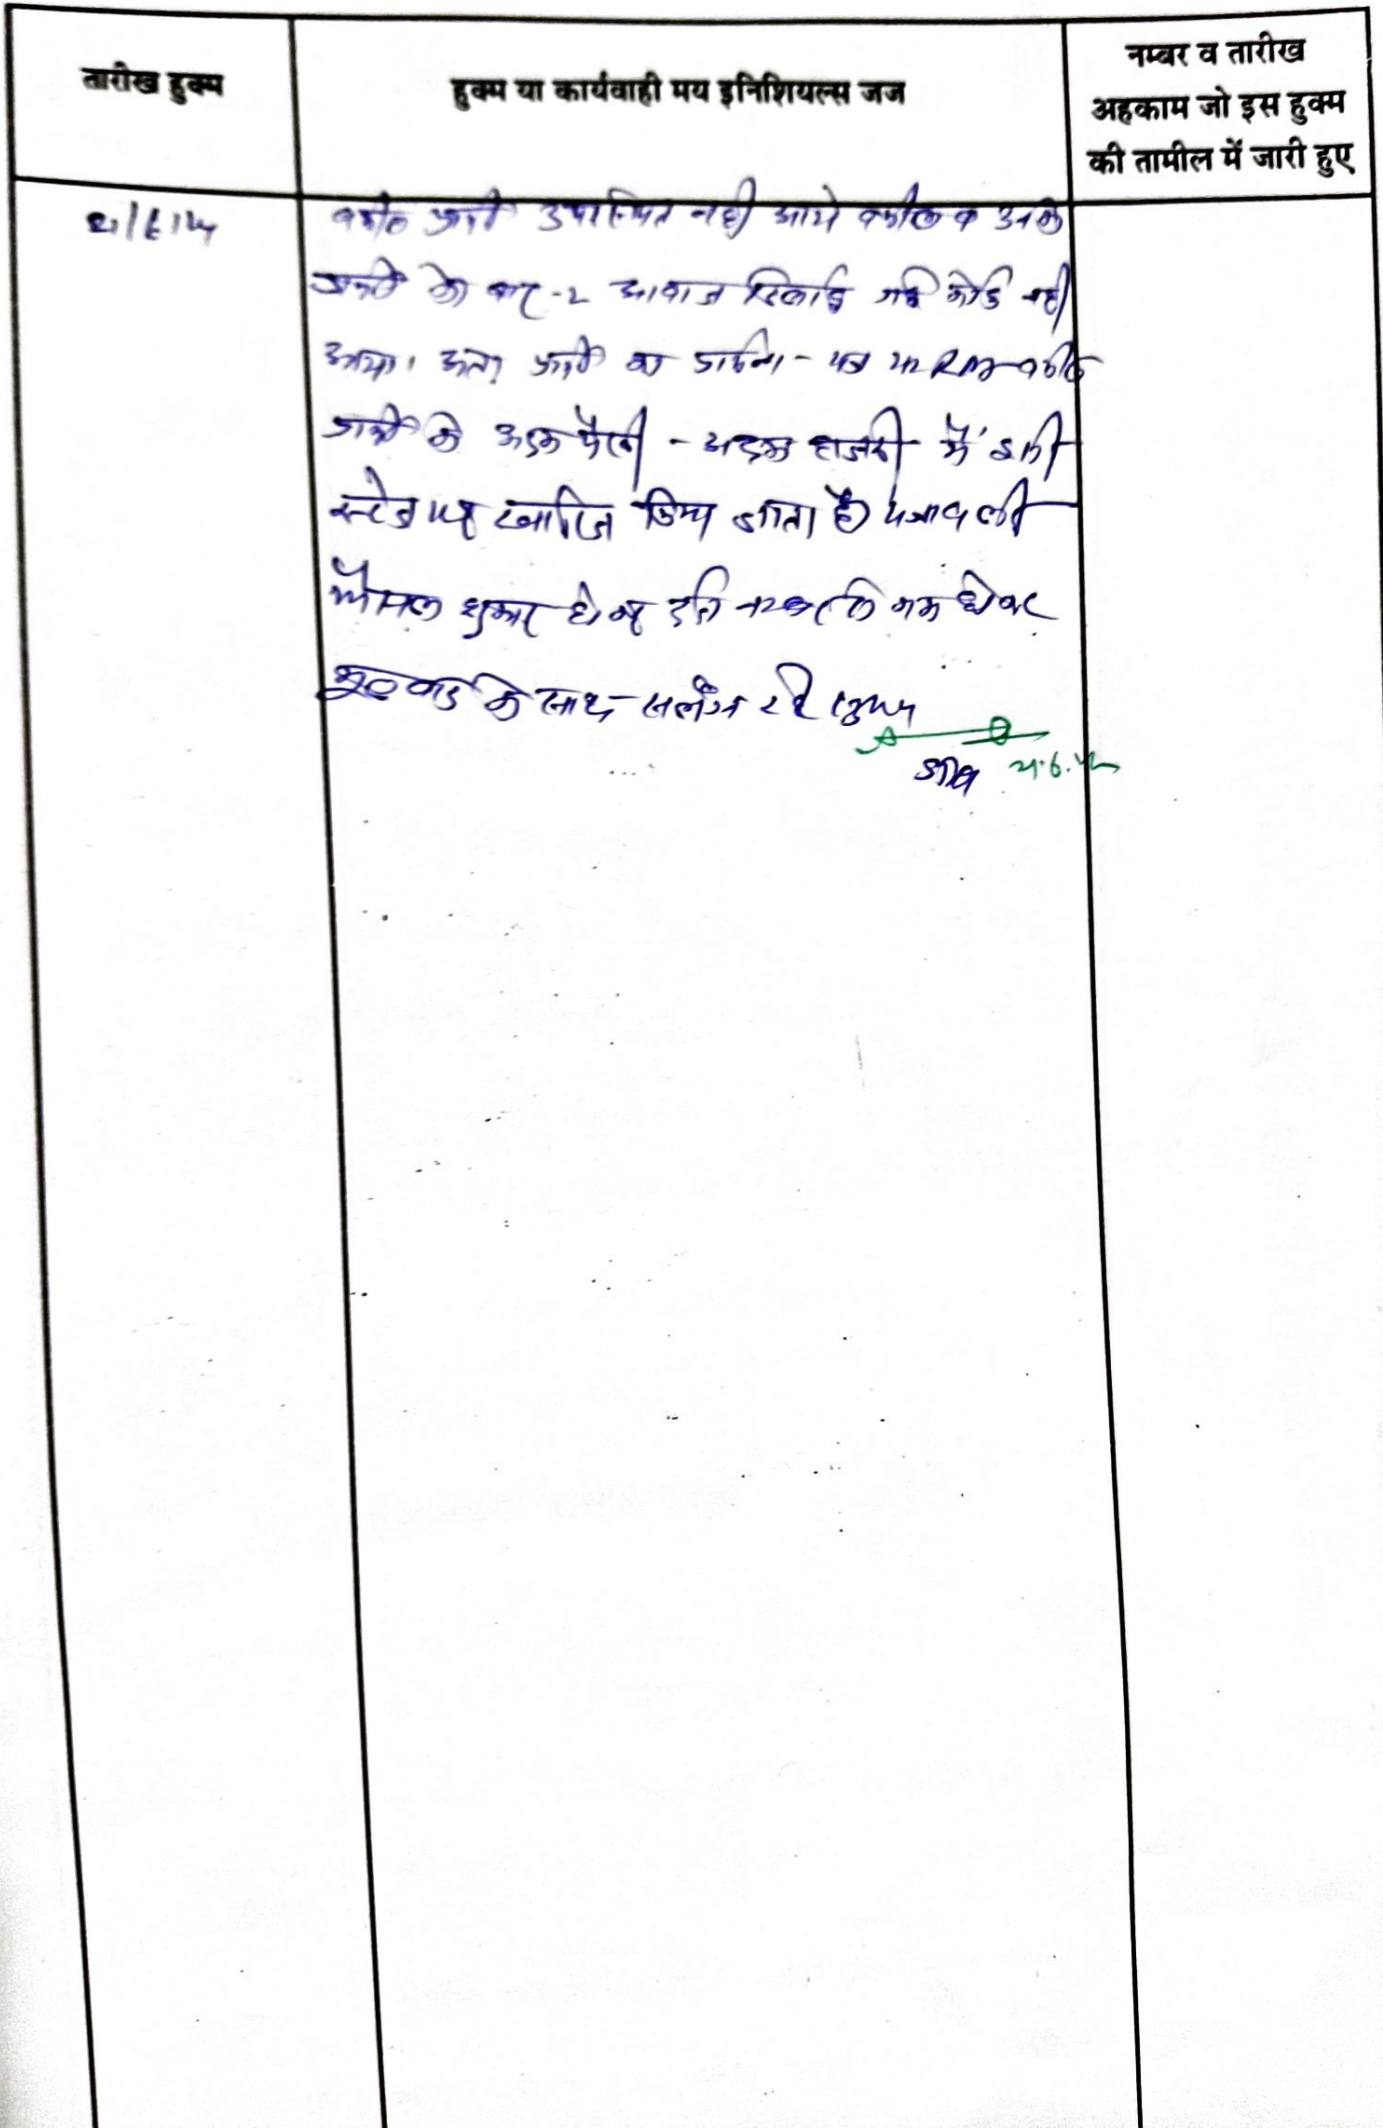 तारीख हुक्म
हुक्म या कार्यवाही मय इनिशियल्स जज
नम्बर व तारीख
अहकाम जो इस हुक्म
की तामील में जारी हुए
वकील प्रार्थी उपस्थित नही आये वकील व उनके
प्रार्थी को बार-2 आवाज दिलाई गई कोई नही
आया। अतः प्रार्थी का प्रार्थना-पत्र वकील
प्रार्थी के अदम पैरवी - अदम हाजरी में इसी
स्टेज पर खारिज किया जाता है पत्रावली
फैसल शुमार होकर होकर
मूल वाद के साथ संलग्न रहे